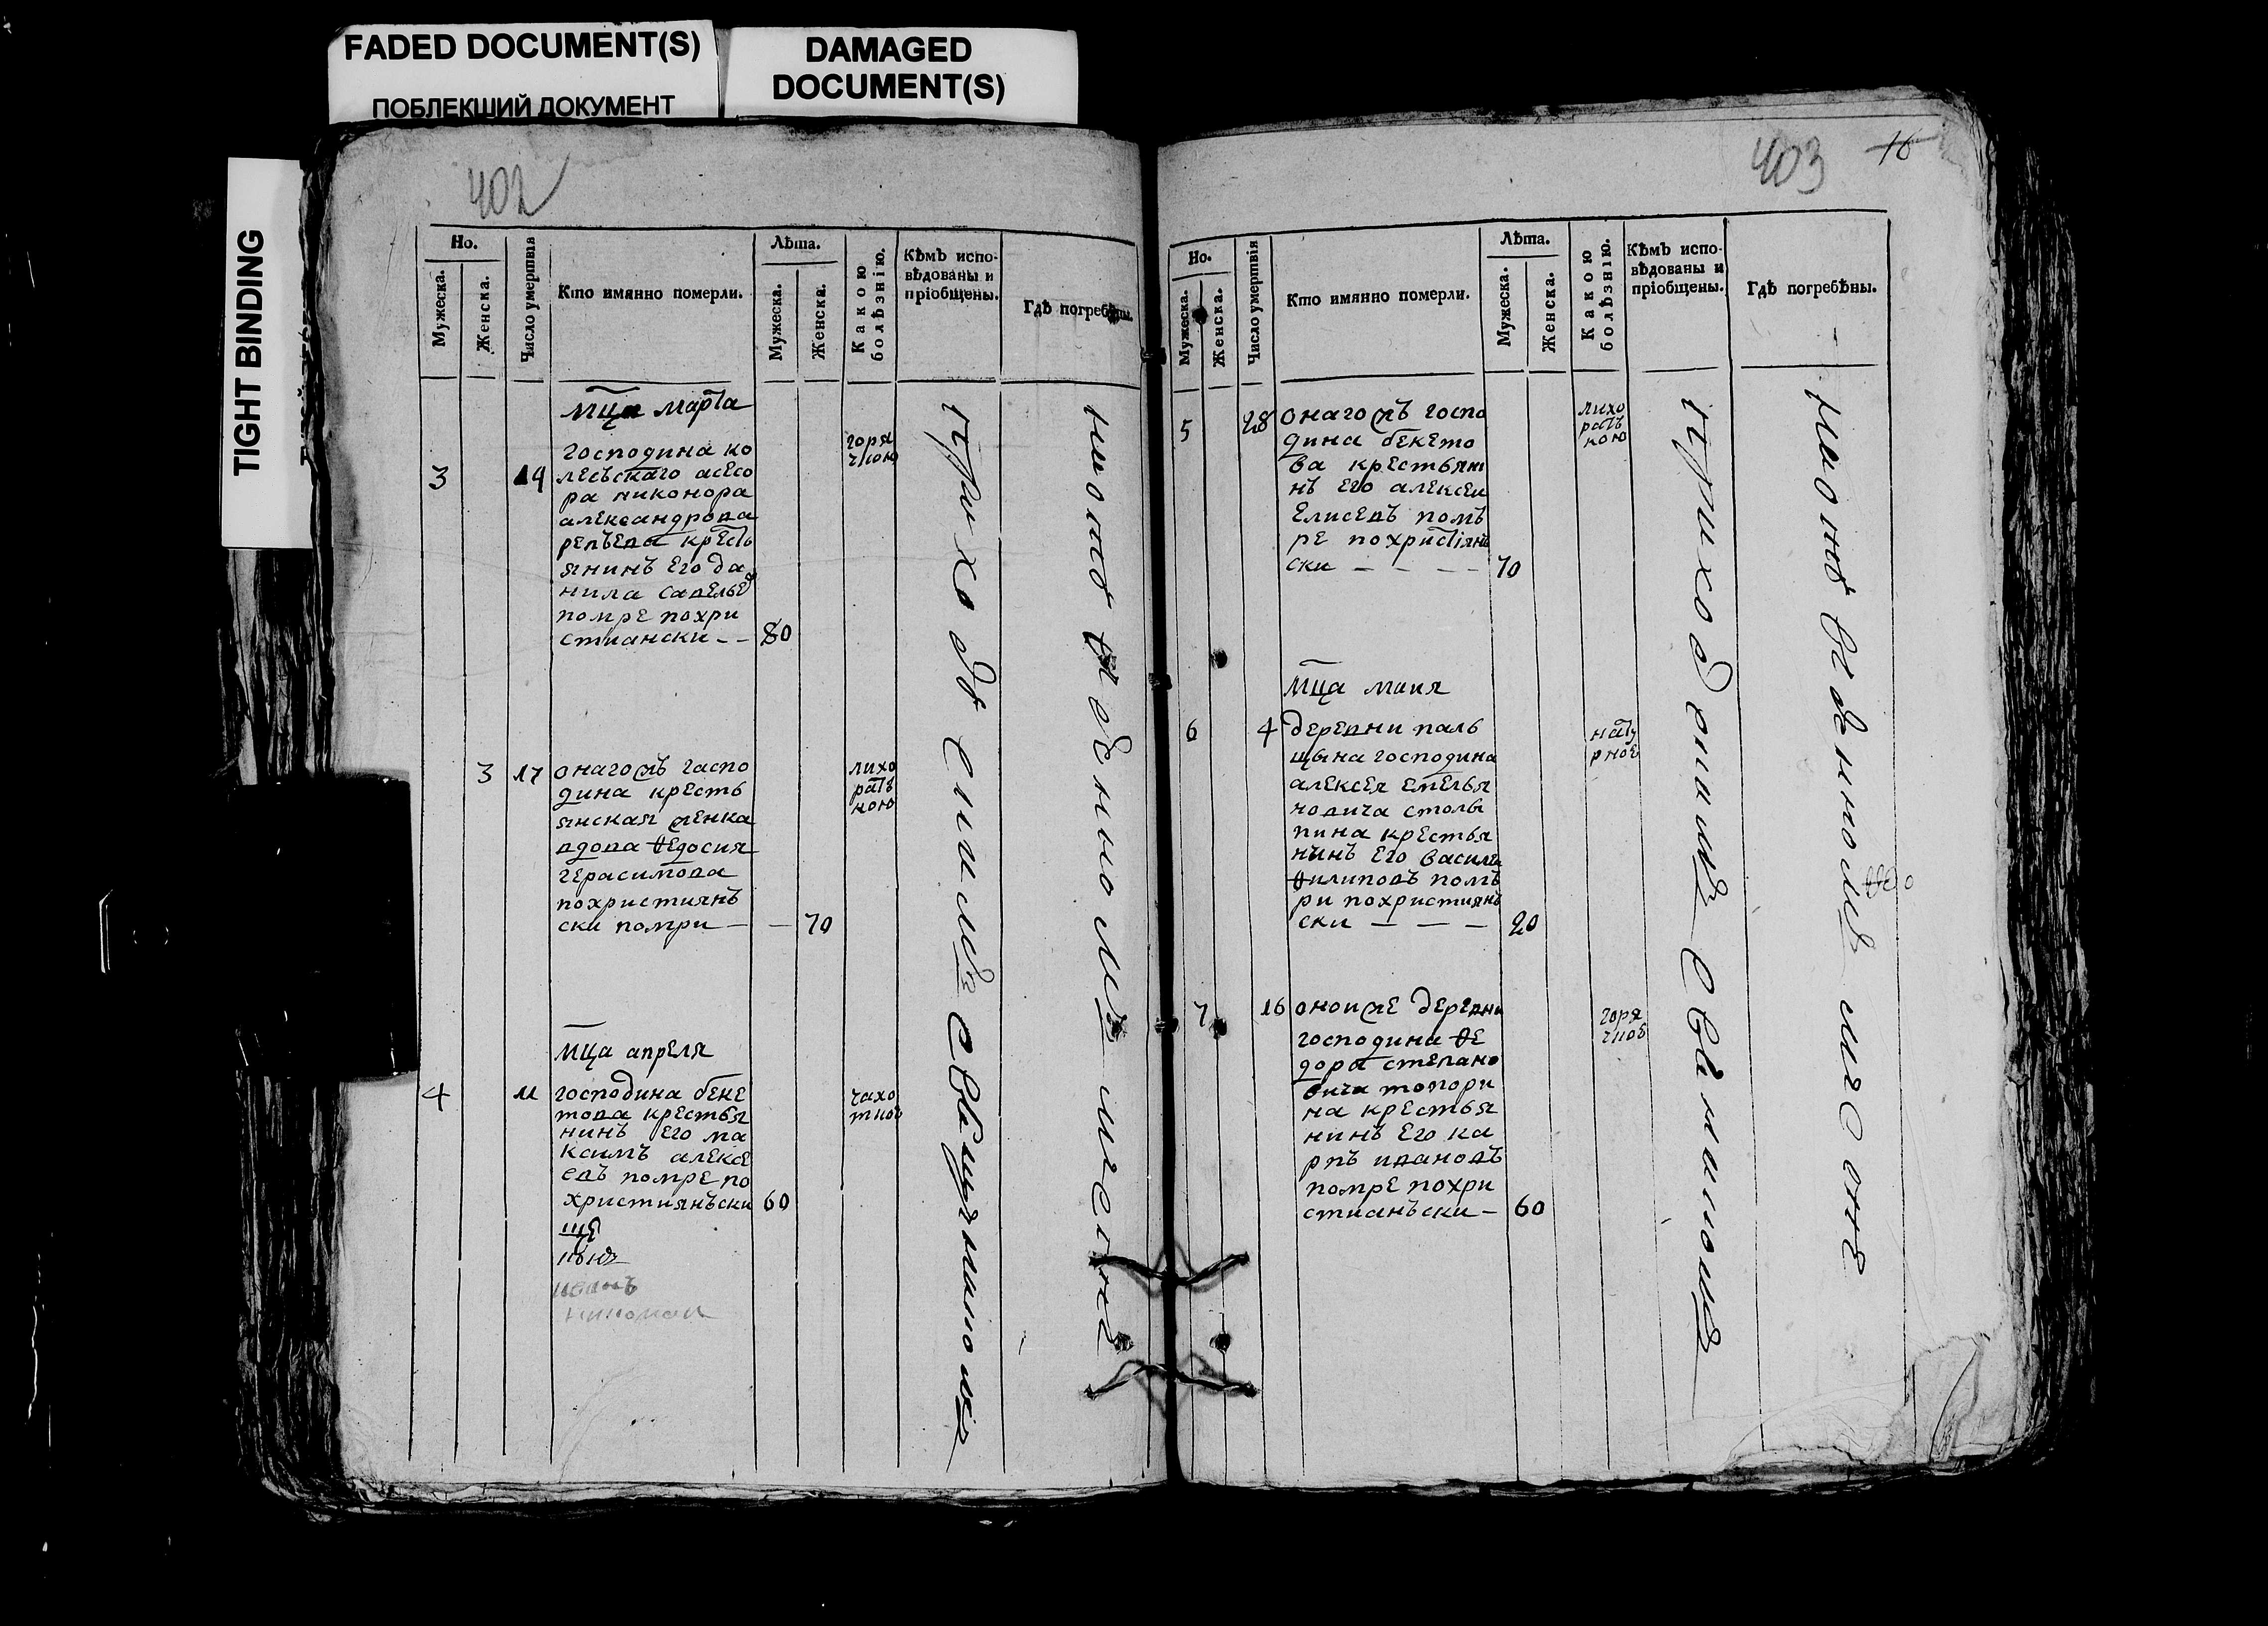 FADED DOCUMENT(S)
ПОБЛЕКШИЙ ДОКУМЕНТ
DAMAGED
DOCUMENT(S)
TIGHT BINDING
402
Но.
Мужеска.
Женска.
Число умертвія
Кто имянно померли.
Лѣта.
Мужеска.
Женска.
Какою
болѣзнію.
Кѣмъ испо-
вѣдованы и
пріобщены.
Гдѣ погребѣны.
мца марта
3
14
господина ко
лесъскаго асесо
ра никонора
александрова
репъева кресть
янинъ его да
нила савельев
помре похри
стиански - -
80
горя
чкою
3
17
онагожъ гаспо
дина кресть
янская женка
вдова ѳедосия
герасимова
похристиянъ
ски помри —
—
70
лихо
ратъ
кою
мца апреля
4
11
господина беке
това крестья
нинъ его ма
ксимъ алексе
евъ помре по
християнъски
60
чахо
ткою
403
16
Но.
Мужеска.
Женска.
Число умертвія
Кто имянно померли.
Лѣта.
Мужеска.
Женска.
Какою
болѣзнію.
Кѣмъ испо-
вѣдованы и
пріобщены.
Гдѣ погребѣны.
5
28
онагожъ госпо
дина бекето
ва крестьяни
нъ его алексеи
елисевъ помъ
ре похристіянъ
ски — — — —
70
лихо
ратъ
кою
мца маия
6
4
деревни паль
цына господина
алексея емелья
новича столы
пина крестья
нинъ его василеи
ѳилиповъ помъ
ри похристиянъ
ски — — —
20
нату
рное
7
16
оноиже деревни
господина ѳе
дора степано
вича топори
на крестья
нинъ его ка
рпъ ивановъ
помре похри
стианъски —
60
горя
чкою
приходскимъ священникомъ
приходскимъ священникомъ